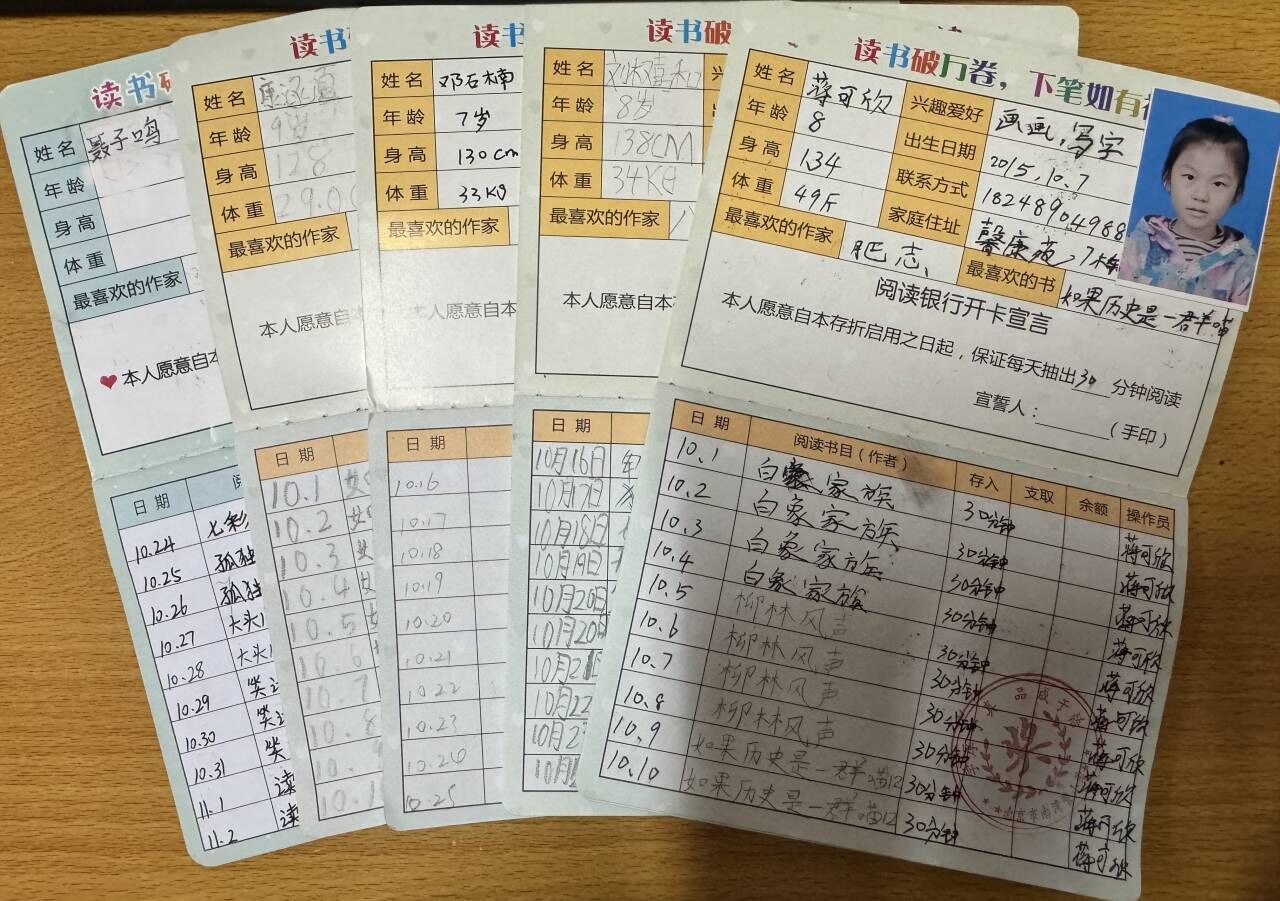 读书破
姓名 聂子鸣
年龄
身高
体重
最喜欢的作家
本人愿意自本
日期
10.24 七彩
10.25 孤独
10.26 孤独
10.27 大头
10.28 大头
10.29 笑
10.30 笑
10.31 笑
11.1 读
11.2 读
读书破
姓名
年龄 9岁
身高 128
体重 29.00
最喜欢的作家
本人愿意自
日期
10.1 女
10.2 女
10.3 女
10.4 女
10.5 女
10.6
10.7
10.8
10.
10.1
读书
姓名 邓石楠
年龄 7岁
身高 130cm
体重 33Kg
最喜欢的作家
本人愿意自本
日期
10.16
10.17
10.18
10.19
10.20
10.21
10.22
10.23
10.24
10.25
读书破
姓名
年龄 8岁
身高 138CM
体重 34KG
最喜欢的作家
本人愿意自本存
日期
10月16日
10月17日
10月18日
10月19日
10月20日
10月20日
10月21
10月22
10月2
10月2
读书破万卷，下笔如有
姓名 蒋可欣 兴趣爱好 画画，写字
年龄 8 出生日期 2015.10.7
身高 134 联系方式 18248904988
体重 49斤 家庭住址 馨康苑，7
最喜欢的作家 肥志 最喜欢的书 如果历史是一群羊喵
阅读银行开卡宣言
本人愿意自本存折启用之日起，保证每天抽出30分钟阅读
宣誓人：________（手印）
日期 阅读书目（作者） 存入 支取 余额 操作员
10.1 白象家族 30分钟 蒋可欣
10.2 白象家族 30分钟 蒋可欣
10.3 白象家族 30分钟 蒋可欣
10.4 白象家族 30分钟 蒋可欣
10.5 柳林风声 30分钟 蒋可欣
10.6 柳林风声 30分钟 蒋可欣
10.7 柳林风声 30分钟 蒋可欣
10.8 柳林风声 30分钟 蒋可欣
10.9 如果历史是一群喵12 30分钟 蒋可欣
10.10 如果历史是一群喵12 30分钟 蒋可欣